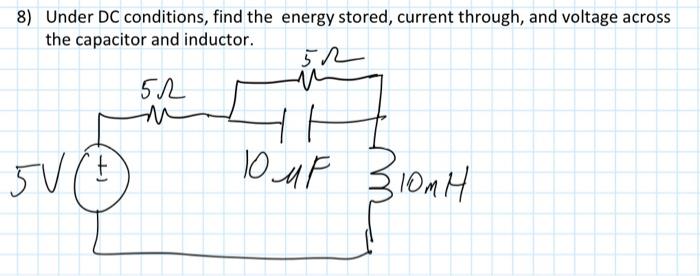 8) Under DC conditions, find the energy stored, current through, and voltage across
the capacitor and inductor.
5Ω
5Ω
5V
+
-
10 μF
10mH